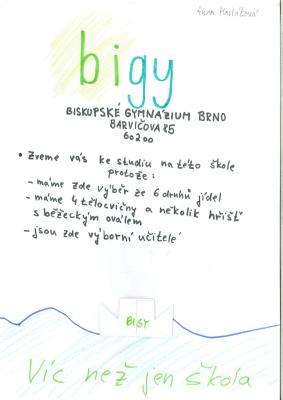 Anna
bigy
BISKUPSKÉ GYMNÁZIUM BRNO
BARVIČOVA 85
60200
• Zveme vás ke studiu na této škole
protože:
- máme zde výběr ze 6 druhů jídel
- máme 4 tělocvičny a několik hřišť
s běžeckým oválem
- jsou zde výborní učitelé
BIGY
Víc než jen škola